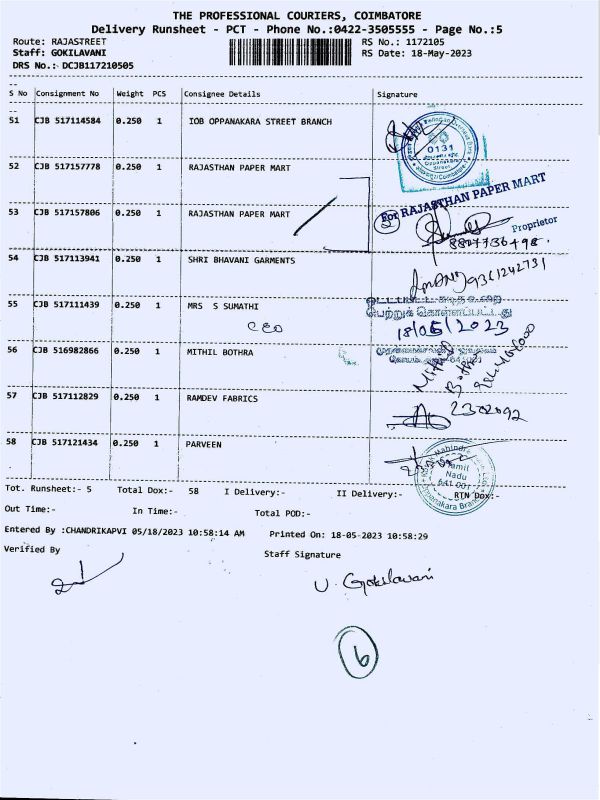 THE PROFESSIONAL COURIERS, COIMBATORE
Delivery Runsheet - PCT - Phone No.:0422-3505555 - Page No.:5
Route: RAJASTREET RS No.: 1172105
Staff: GOKILAVANI RS Date: 18-May-2023
DRS No.: DCJB117210505
S No Consignment No Weight PCS Consignee Details Signature
51 CJB 517114584 0.250 1 IOB OPPANAKARA STREET BRANCH
0131
52 CJB 517157778 0.250 1 RAJASTHAN PAPER MART
For RAJASTHAN PAPER MART
53 CJB 517157806 0.250 1 RAJASTHAN PAPER MART
2
Proprietor
54 CJB 517113941 0.250 1 SHRI BHAVANI GARMENTS
9361242731
55 CJB 517111439 0.250 1 MRS S SUMATHI
CEO
18/05/2023
56 CJB 516982866 0.250 1 MITHIL BOTHRA
Mithil
Bothra
57 CJB 517112829 0.250 1 RAMDEV FABRICS
2302092
58 CJB 517121434 0.250 1 PARVEEN
Tamil
Nadu
641 001
Tot. Runsheet:- 5 Total Dox:- 58 I Delivery:- II Delivery:- RTN Dox:-
Out Time:- In Time:- Total POD:-
Entered By :CHANDRIKAPVI 05/18/2023 10:58:14 AM Printed On: 18-05-2023 10:58:29
Verified By Staff Signature
V. Gokilavani
6